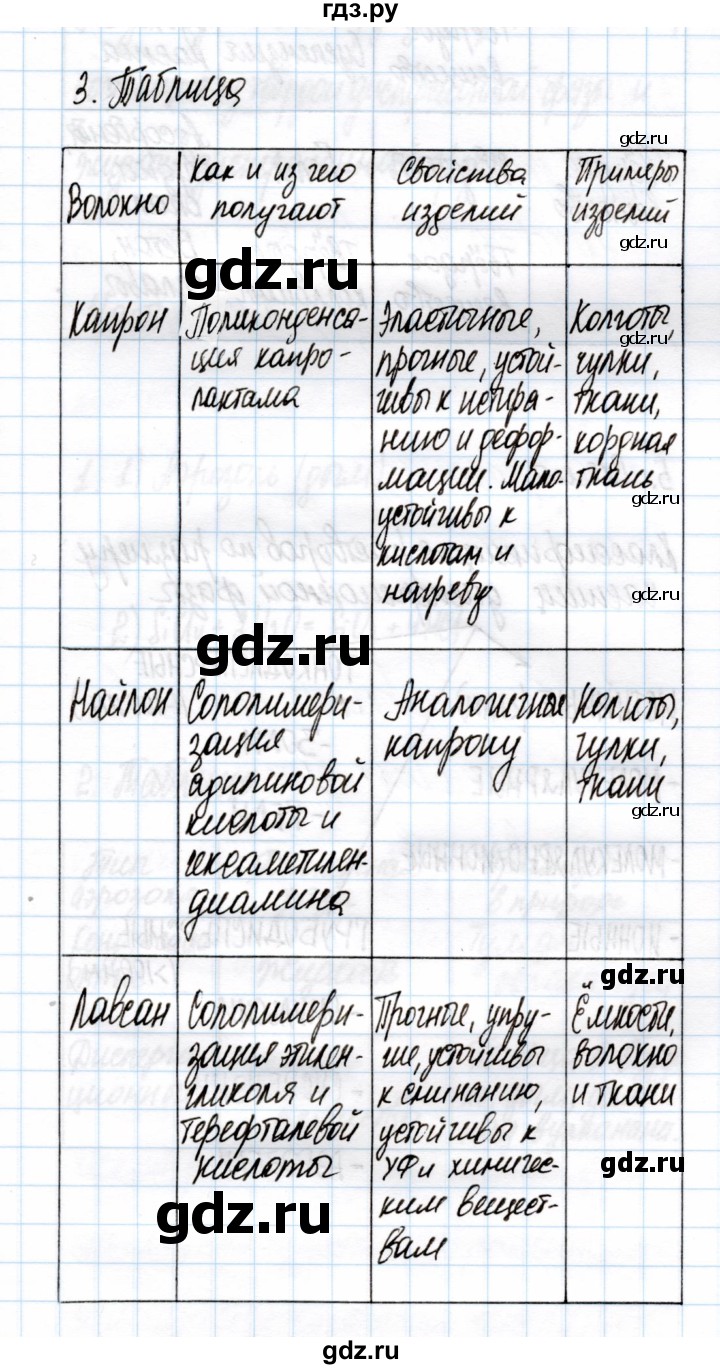 гдз.ру
3. Таблица
gdz.ru
Волокно
Как и из чего
получают
Свойства
изделий
Примеры
изделий
gdz.ru
gdz.ru
Капрон
Поликонденса-
ция капро-
лактама
Эластичные,
прочные, устой-
чивы к истира-
нию и дефор-
мации. Мало-
устойчивы к
кислотам и
нагреву
Колготы,
gdz.ru
чулки,
ткани,
кордная
ткань
gdz.ru
gdz.ru
gdz.ru
Найлон
Сополимери-
зация
адипиновой
кислоты и
гексаметилен-
диамина
Аналогичные
капрону
Колготы,
чулки,
ткани
gdz.ru
gdz.ru
Лавсан
Сополимери-
зация этилен-
гликоля и
терефталевой
кислоты
gdz.ru
Прочные, упру-
гие, устойчивы
к сминанию,
устойчивы к
УФ и химичес-
ким вещест-
вам
Ёмкости,
волокно
и ткани
gdz.ru
gdz.ru